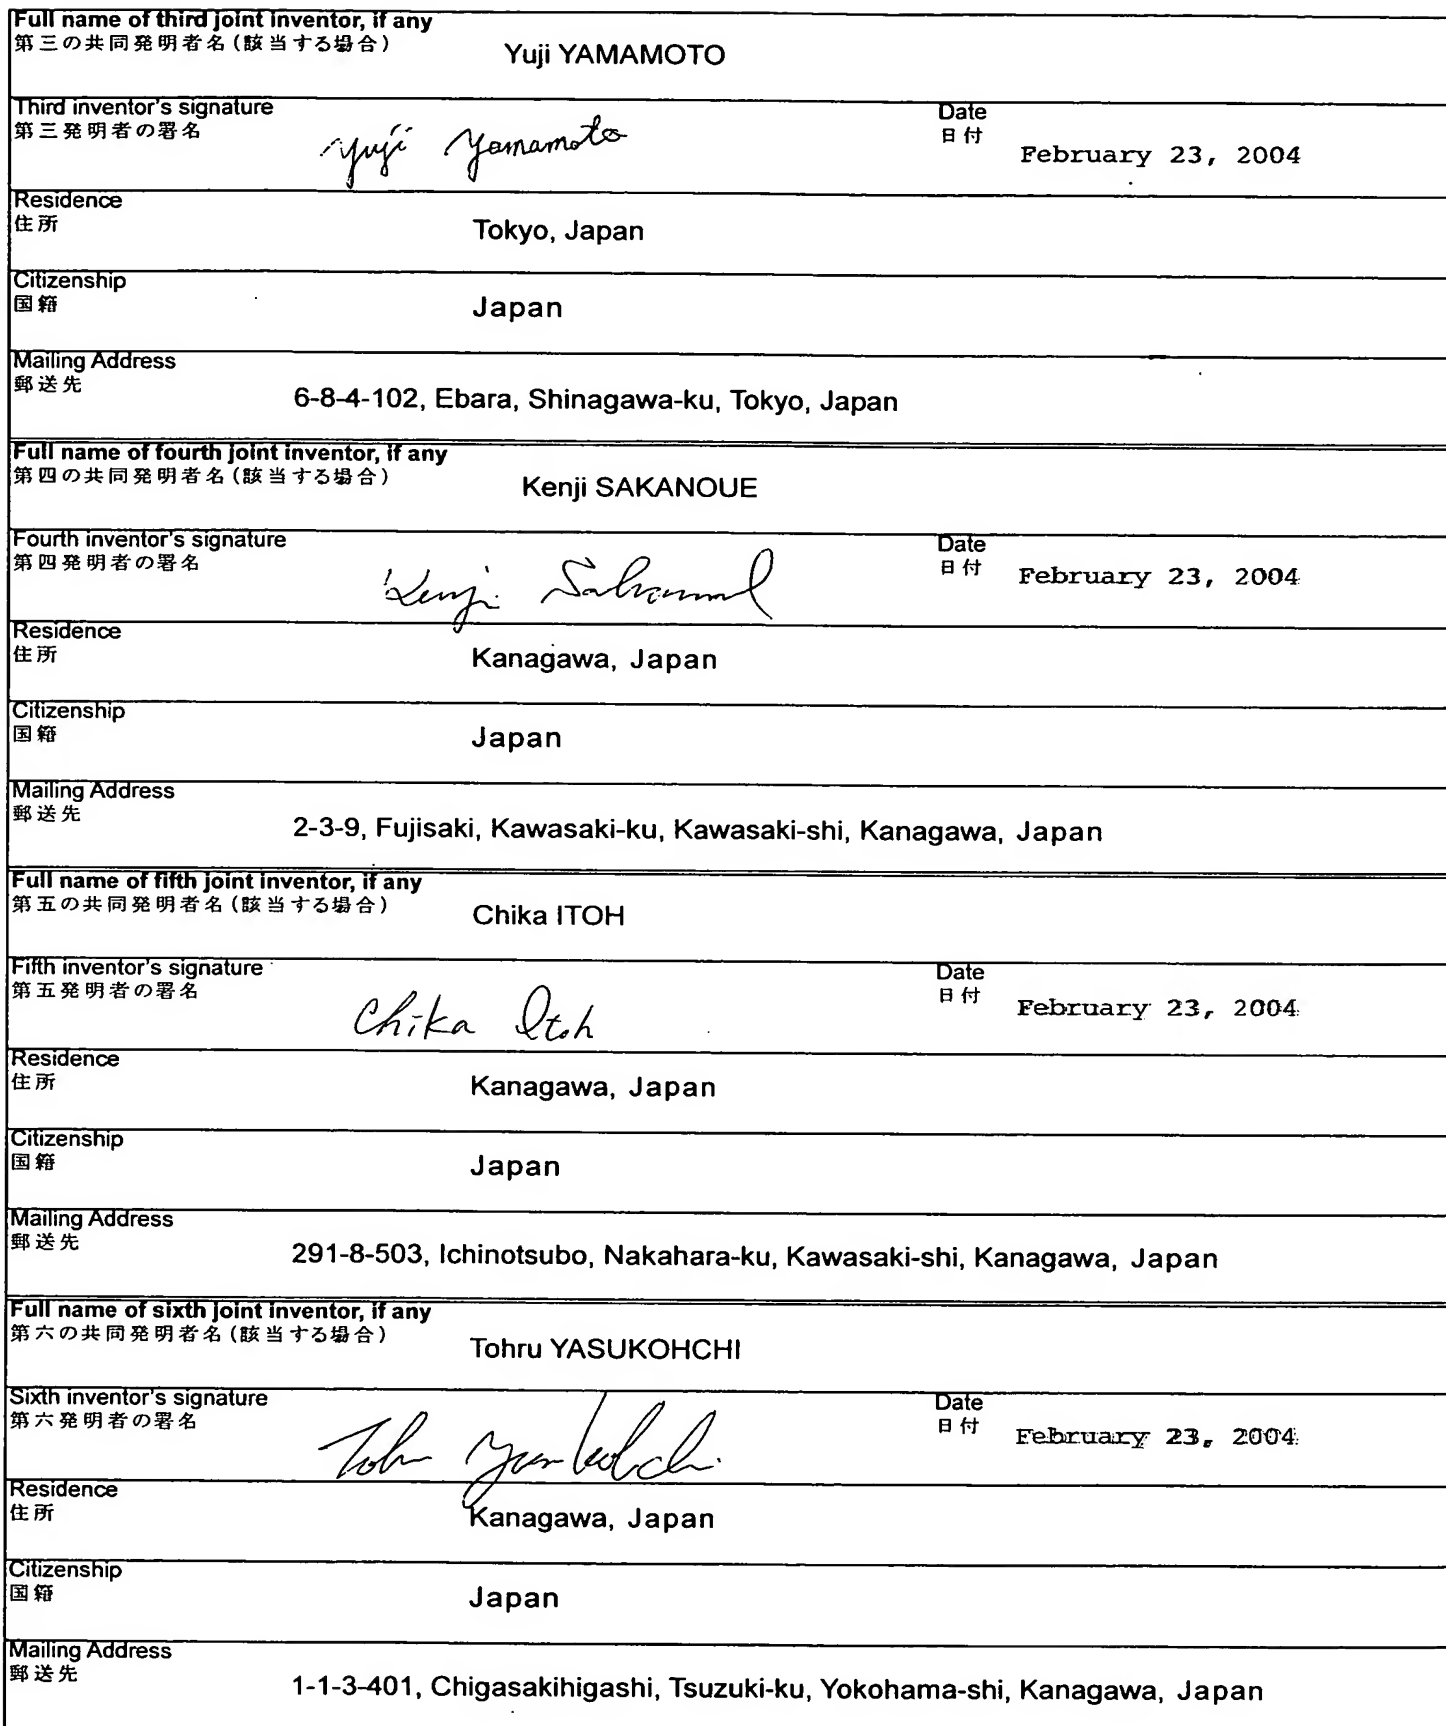 Full name of third joint inventor, if any
第三の共同発明者名(該当する場合)
Yuji YAMAMOTO
Third inventor's signature
第三発明者の署名
Yuji Yamamoto
Date
日付
February 23, 2004
Residence
住所
Tokyo, Japan
Citizenship
国籍
Japan
Mailing Address
郵送先
6-8-4-102, Ebara, Shinagawa-ku, Tokyo, Japan
Full name of fourth joint inventor, if any
第四の共同発明者名(該当する場合)
Kenji SAKANOUE
Fourth inventor's signature
第四発明者の署名
Kenji Sakanoue
Date
日付
February 23, 2004
Residence
住所
Kanagawa, Japan
Citizenship
国籍
Japan
Mailing Address
郵送先
2-3-9, Fujisaki, Kawasaki-ku, Kawasaki-shi, Kanagawa, Japan
Full name of fifth joint inventor, if any
第五の共同発明者名(該当する場合)
Chika ITOH
Fifth inventor's signature
第五発明者の署名
Chika Itoh
Date
日付
February 23, 2004
Residence
住所
Kanagawa, Japan
Citizenship
国籍
Japan
Mailing Address
郵送先
291-8-503, Ichinotsubo, Nakahara-ku, Kawasaki-shi, Kanagawa, Japan
Full name of sixth joint inventor, if any
第六の共同発明者名(該当する場合)
Tohru YASUKOHCHI
Sixth inventor's signature
第六発明者の署名
Tohru Yasukohchi
Date
日付
February 23, 2004
Residence
住所
Kanagawa, Japan
Citizenship
国籍
Japan
Mailing Address
郵送先
1-1-3-401, Chigasakihigashi, Tsuzuki-ku, Yokohama-shi, Kanagawa, Japan